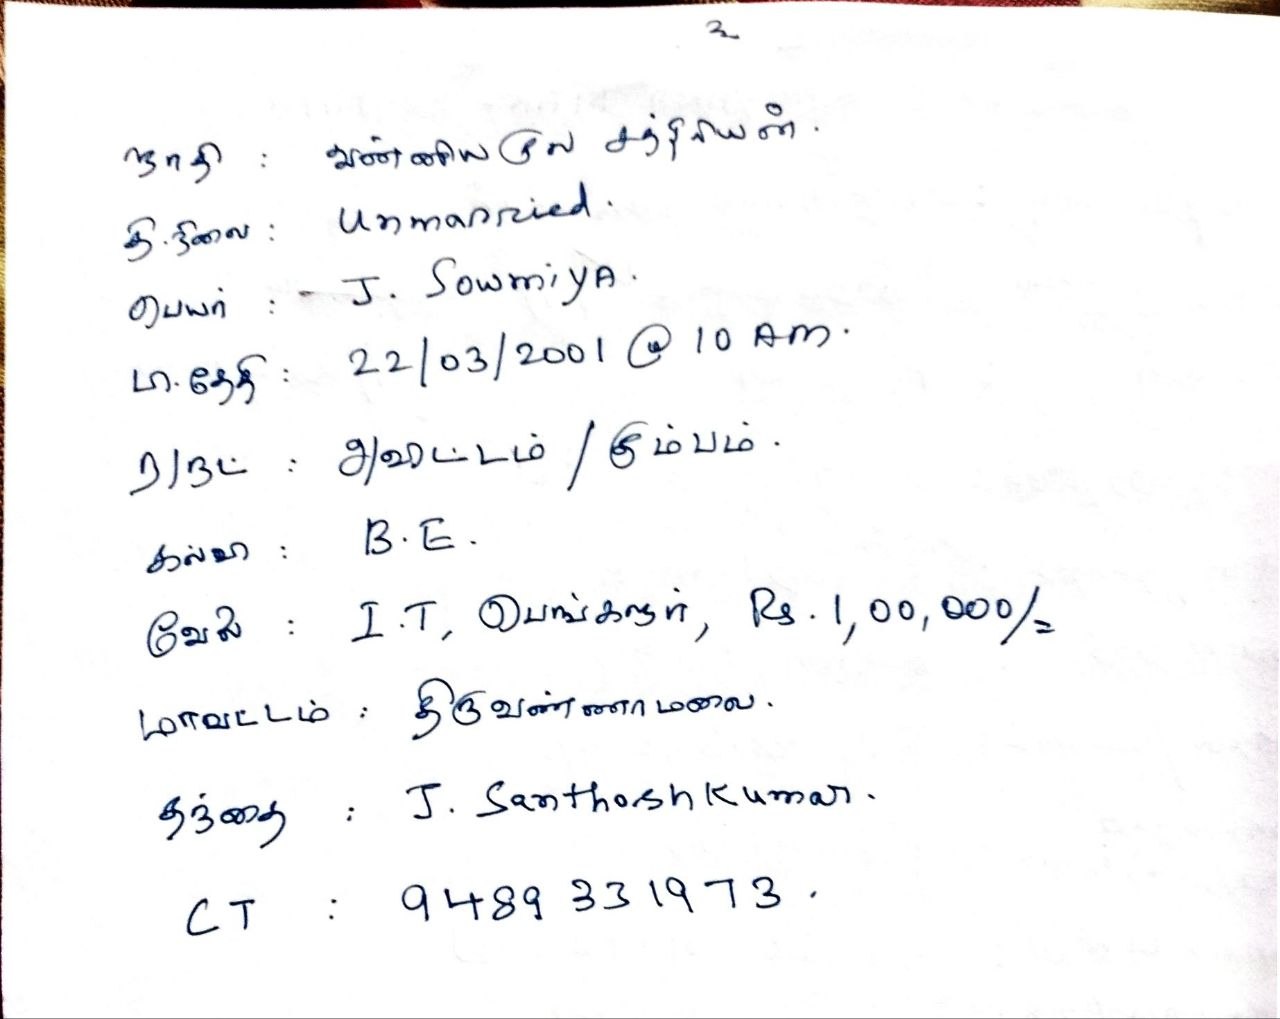 உ
சாதி : வன்னிய குல சத்திரியன்.
தி.நிலை : Unmarried.
பெயர் : - J. Sowmiya.
பி.தேதி : 22/03/2001 @ 10 Am.
ரா/நட் : அவிட்டம் / கும்பம்.
கல்வி : B.E.
வேலை : I.T, பெங்களூர், Rs. 1,00,000/=
மாவட்டம் : திருவண்ணாமலை.
தந்தை : J. Santhosh Kumar.
CT : 9489 331973.